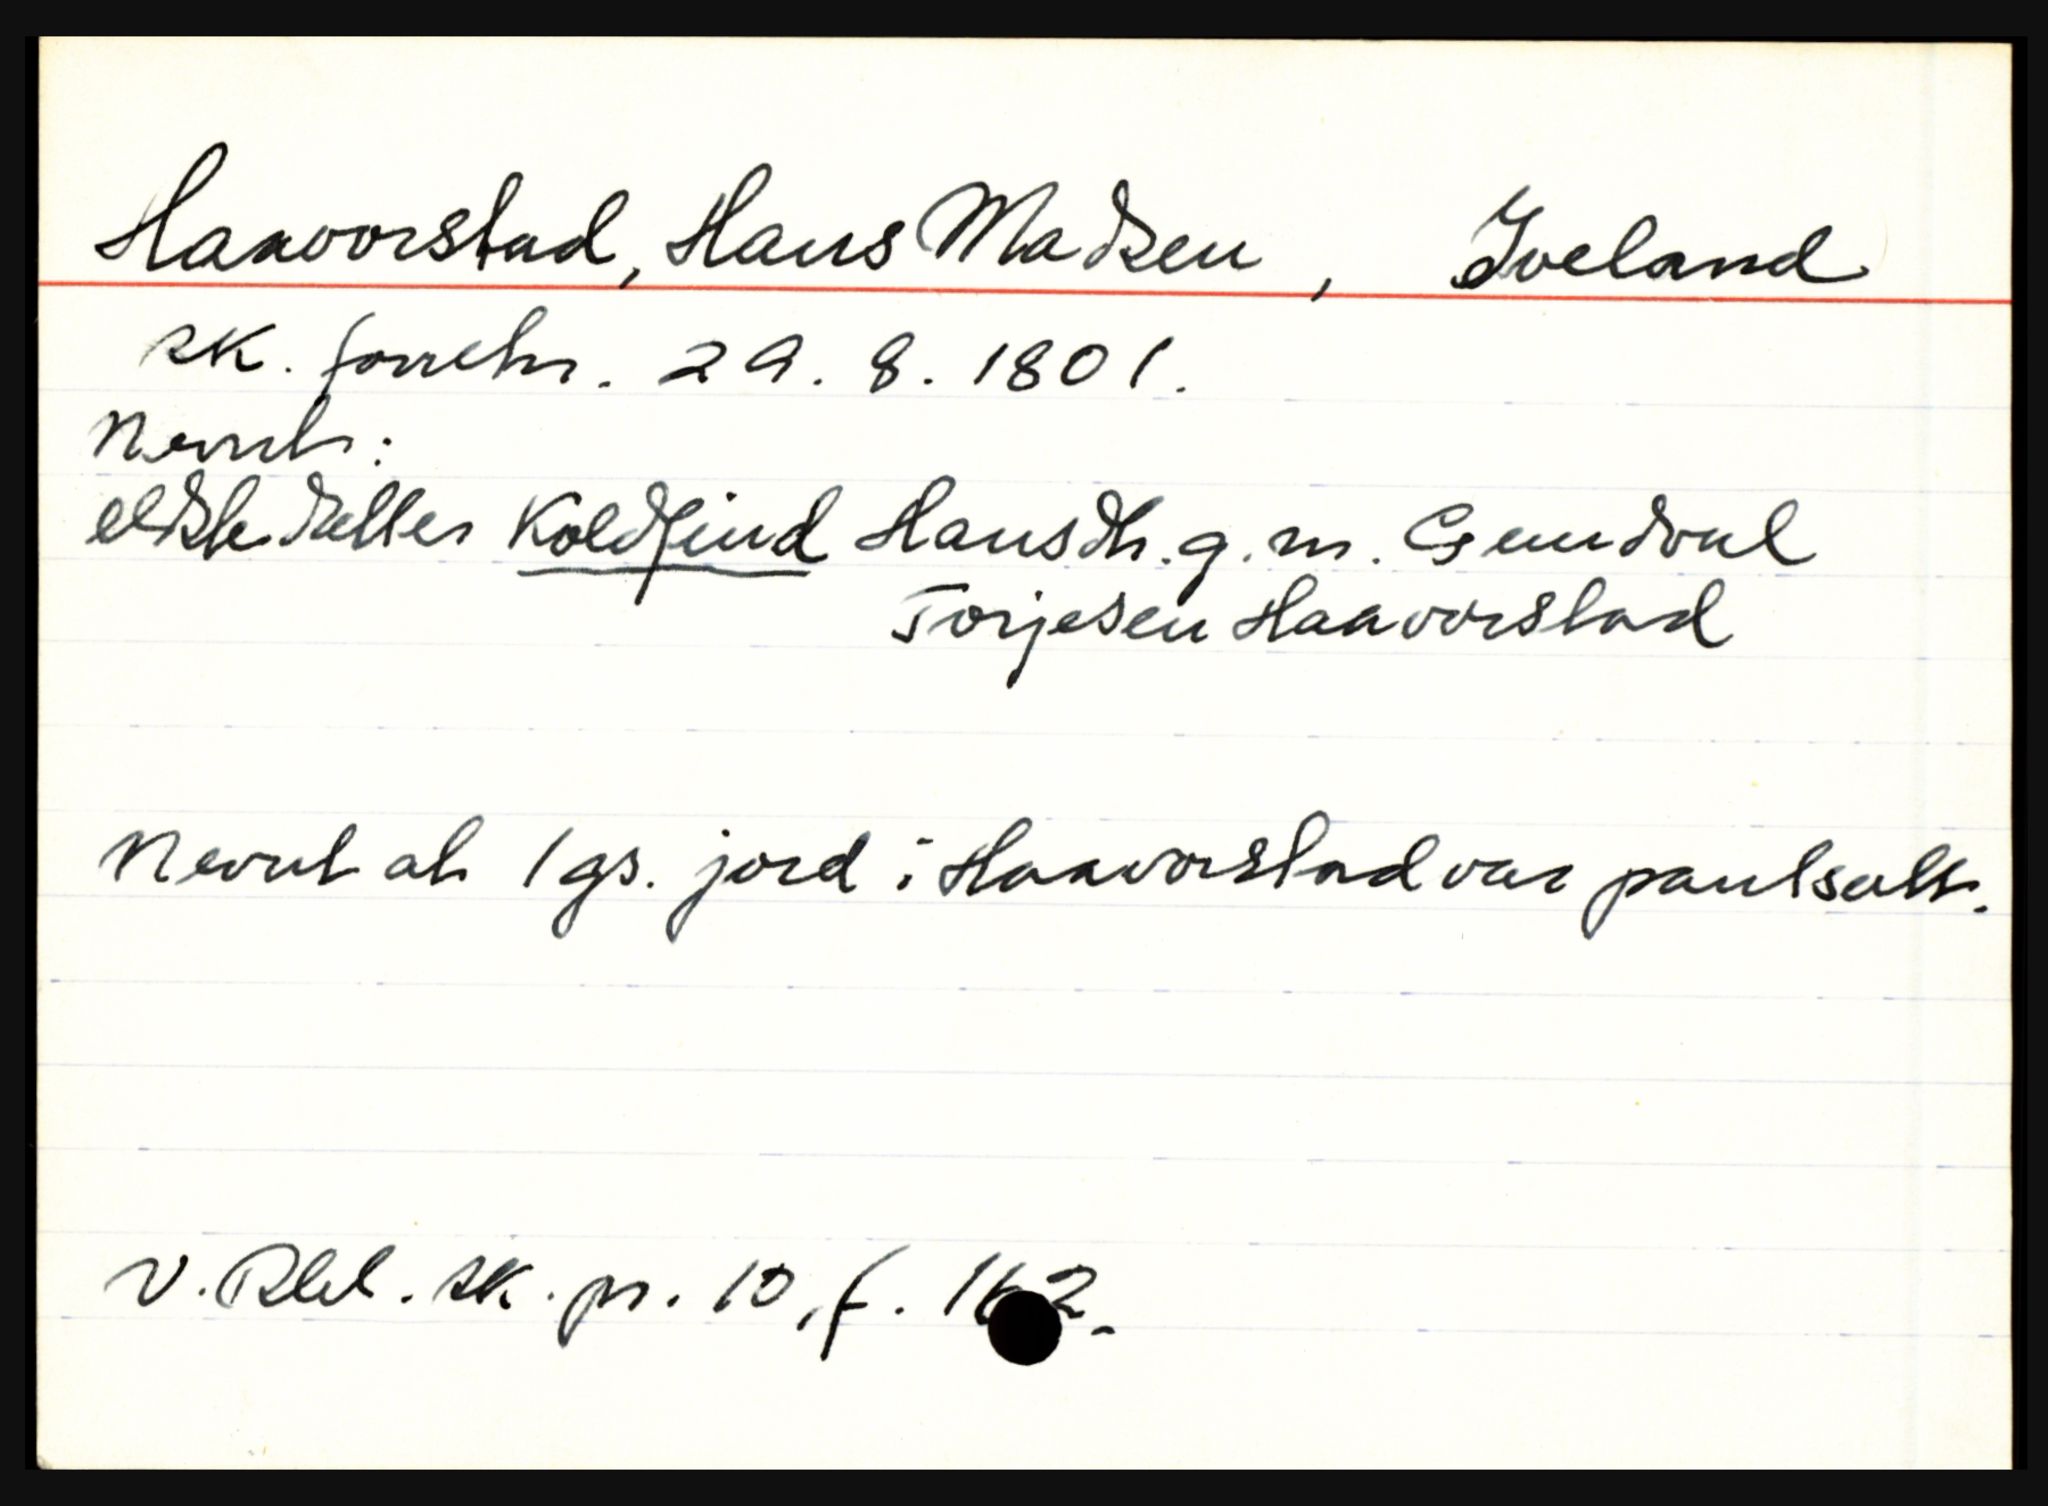 Haavorstad, Hans Madsen, Iveland
sk. forretn. 29. 8. 1801.
Nevnt:
eldste datter Koldfind Hansdtr. g. m. Gundvul
Torjesen Haavorstad
Nevnt at 1 gs. jord i Haavorstad var pantsatt.
V. Rbl. sk. pr. 10, f. 162.